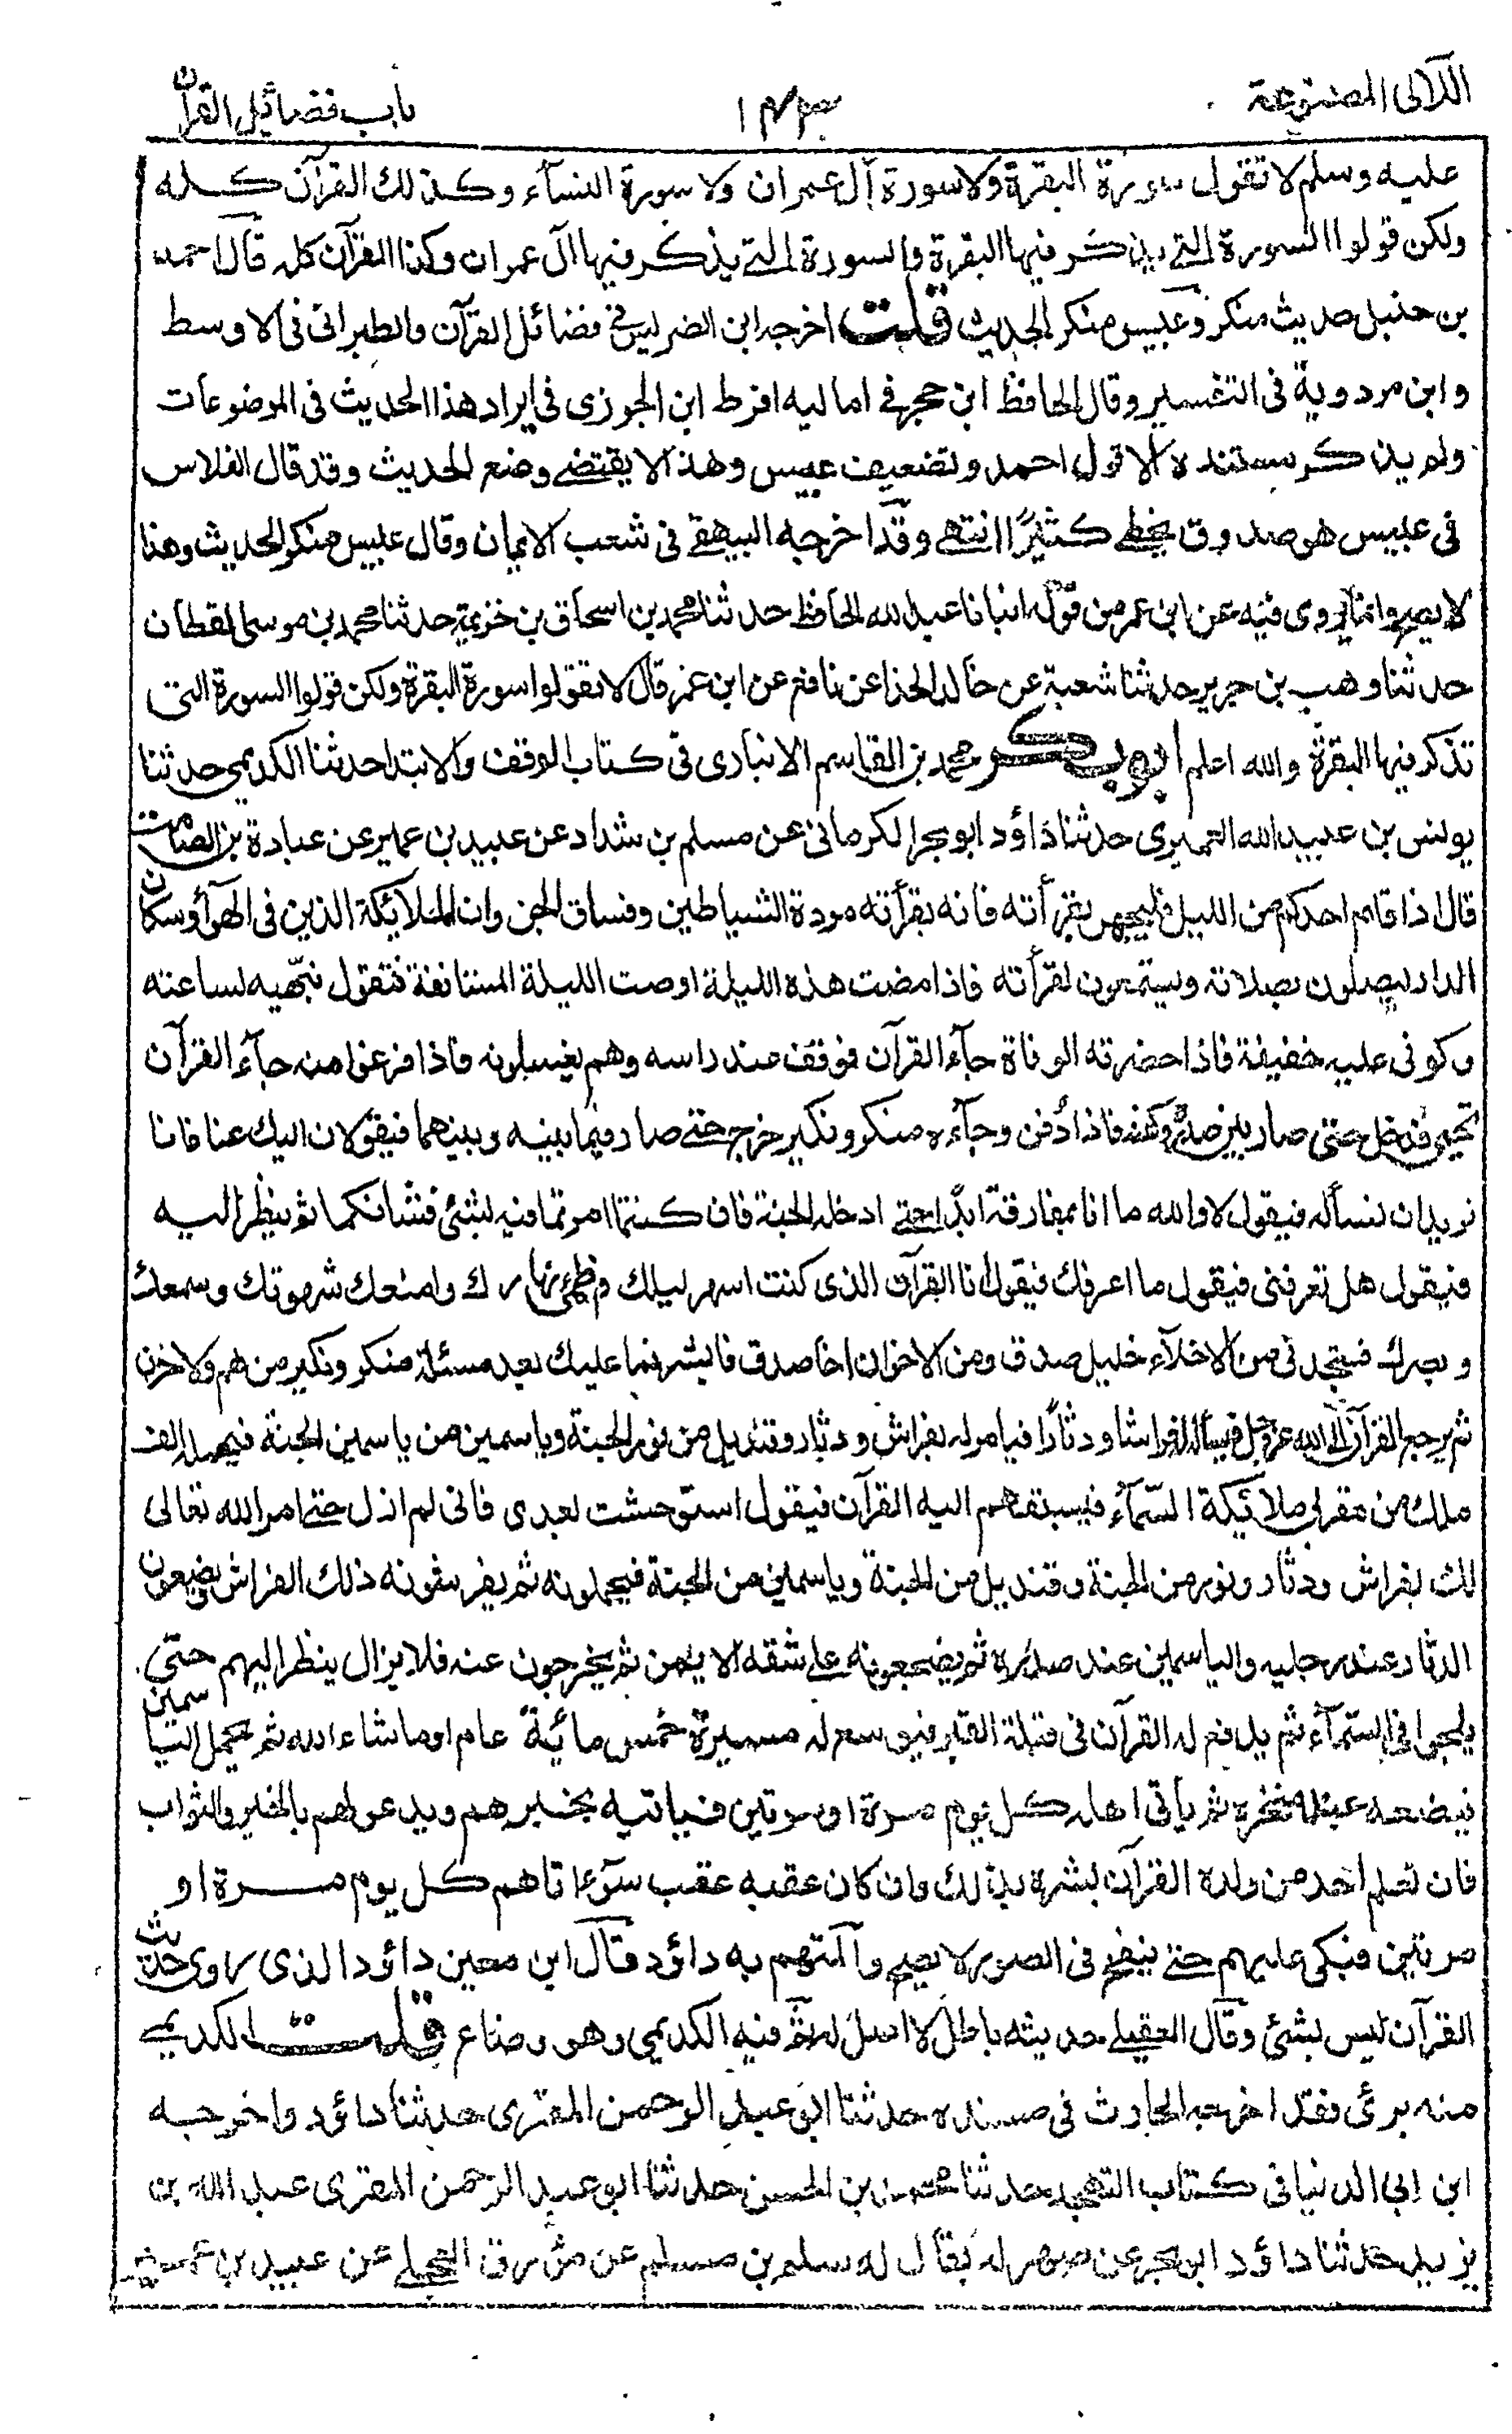 اللآلى المصنوعة
١٢٣
باب فضائل القرآن
عليه وسلم لا تقول سورة البقرة ولا سورة آل عمران ولا سورة النسآء وكذلك القرآن كله
ولكن قولوا السورة التى يذكر فيها البقرة والسورة التى يذكر فيها آل عمران وكذا القرآن كله قال احمد
بن حنبل حديث منكر وعبيس منكر الحديث قلت اخرجه ابن الضريس فى فضائل القرآن والطبرانى فى الاوسط
وابن مردوية فى التفسير وقال الحافظ ابن حجر فى اماليه افرط ابن الجوزى فى ايراد هذا الحديث فى الموضوعات
ولم يذكر مستنده الا قول احمد وتضعيف عبيس وهذا لا يقتضى وضع الحديث وقد قال الفلاس
فى عبيس هو صدوق يخطى كثيرًا انتهى وقد اخرجه البيهقى فى شعب الايمان وقال عبيس منكر الحديث وهذا
لا يصح وانما يروى فيه عن ابن عمر من قوله انبانا عبد الله الحافظ حدثنا محمد بن اسحاق بن خزيمة حدثنا محمد بن موسى القطان
حدثنا وهب بن جرير حدثنا شعبة عن خالد الحذا عن نافع عن ابن عمر قال لا تقولوا سورة البقرة ولكن قولوا السورة التى
تذكر فيها البقرة والله اعلم ابو بكر محمد بن القاسم الانبارى فى كتاب الوقف والابتدا حدثنا الكديمى حدثنا
يونس بن عبيد الله العميرى حدثنا داؤد ابو بحر الكرمانى عن مسلم بن شداد عن عبيد بن عمير عن عبادة بن الصامت
قال اذا قام احدكم من الليل فليجهر بقرأته فانه بقرأته مردة الشياطين وفساق الجن وان الملائكة الذين فى الهوآ وسكان
الدار ليصلون بصلاته ويستمعون لقرأته فاذا مضت هذه الليلة اوصت الليلة المستانفة فتقول نبهيه لساعته
وكونى عليه خفيفة فاذا حضرته الوفاة جآء القرآن فوقف عند راسه وهم يغسلونه فاذا فرغوا منه جآء القرآن
حتى صار بين صدره وكفنه فاذا دفن وجآءه منكر ونكير خرج حتى صار فيما بينه وبينهما فيقولان اليك عنا فانا
نريد ان نسأله فيقول لا والله ما انا بمفارقه ابدًا حتى ادخله الجنة فان كنتما امرتما فيه بشئ فشانكما ثم ينظر اليه
فيقول هل تعرفنى فيقول ما اعرفك فيقول انا القرآن الذى كنت اسهر ليلك واظمئ نهارك وامنعك شهوتك وسمعك
وبصرك فستجدنى من الاخلآء خليل صدق ومن الاخوان اخا صدق فابشر فما عليك بعد مسئلة منكر ونكير من هم ولا حزن
ثم يرجع القرآن الى الله عز وجل فيسأله له فراشا ودثارًا فيامر له بفراش ودثار وقنديل من نور الجنة وياسمين من ياسمين الجنة فيحمله الف
ملك من مقربى ملائكة السمآء فيسبقهم اليه القرآن فيقول استوحشت بعدى فانى لم ازل حتى امر الله تعالى
لك بفراش ودثار ونور من الجنة وقنديل من الجنة وياسمين من الجنة فيحملونه ثم يفرشونه ذلك الفراش ويضعون
الدثار عند رجليه والياسمين عند صدره ثم يضجعونه على شقه الايمن ثم يخرجون عنه فلا يزال ينظر اليهم حتى
يلجوا فى السمآء ثم يدفع له القرآن فى قبلة القبر فيوسع له مسيرة خمس مائة عام او ما شاء الله ثم يحمل الياسمين
فيضعه عند منخره ثم يأتى اهله كل يوم مرة او مرتين فياتيه بخبرهم ويدعو لهم بالخير والثواب
فان تعلم احد من ولده القرآن بشره بذلك وان كان عقبه عقب سوٓء اتاهم كل يوم مرة او
مرتين فبكى عليهم حتى ينفخ فى الصور لا يصح والمتهم به داؤد قال ابن معين داؤد الذى روى حديث
القرآن ليس بشئ وقال العقيلى حديثه باطل لا اصل له ثم فيه الكديمى وهو وضاع قلت الكديمى
منه برئ فقد اخرجه الحارث فى مسنده حدثنا ابو عبد الرحمن المقرى حدثنا داؤد واخرجه
ابن ابى الدنيا فى كتاب التهجد حدثنا محمد بن الحسن حدثنا ابو عبد الرحمن المقرى عبد الله بن
يزيد حدثنا داؤد ابو بحر عن صهر له يقال له سلم بن مسلم عن مورق العجلى عن عبيد بن عمير